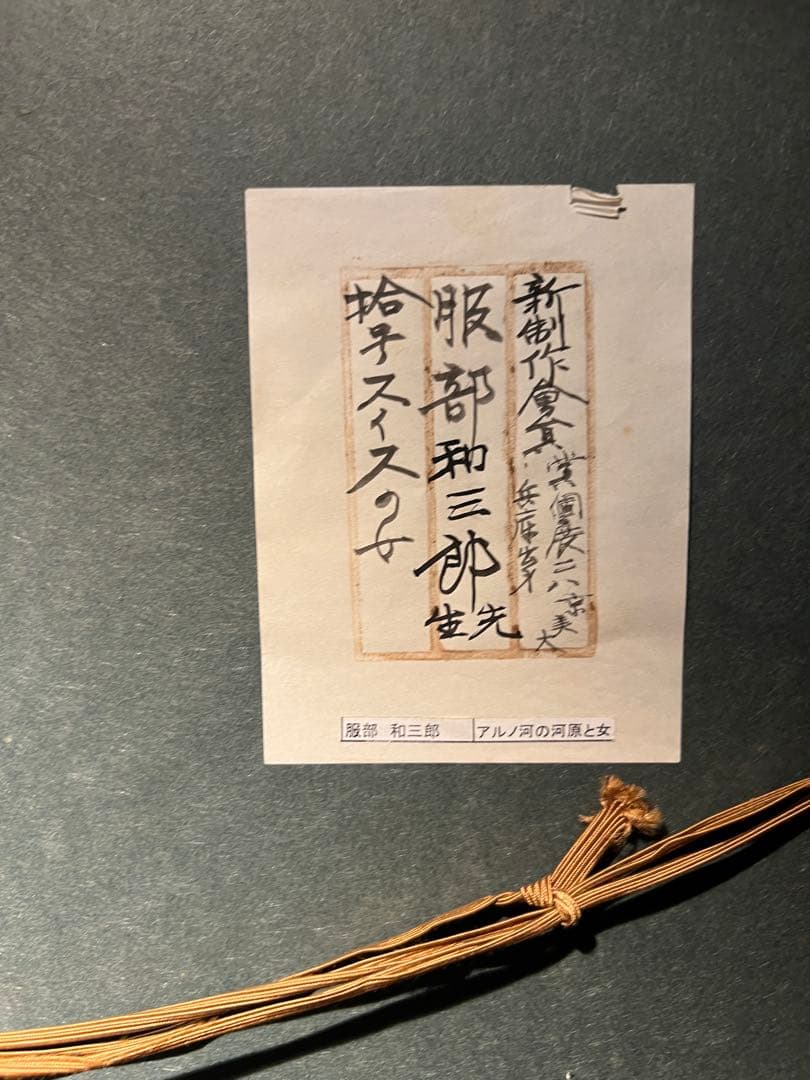 新制作會員
賞個展二八京美大
兵庫出身
服部和三郎先生
拾子スイスの女
服部 和三郎
アルノ河の河原と女